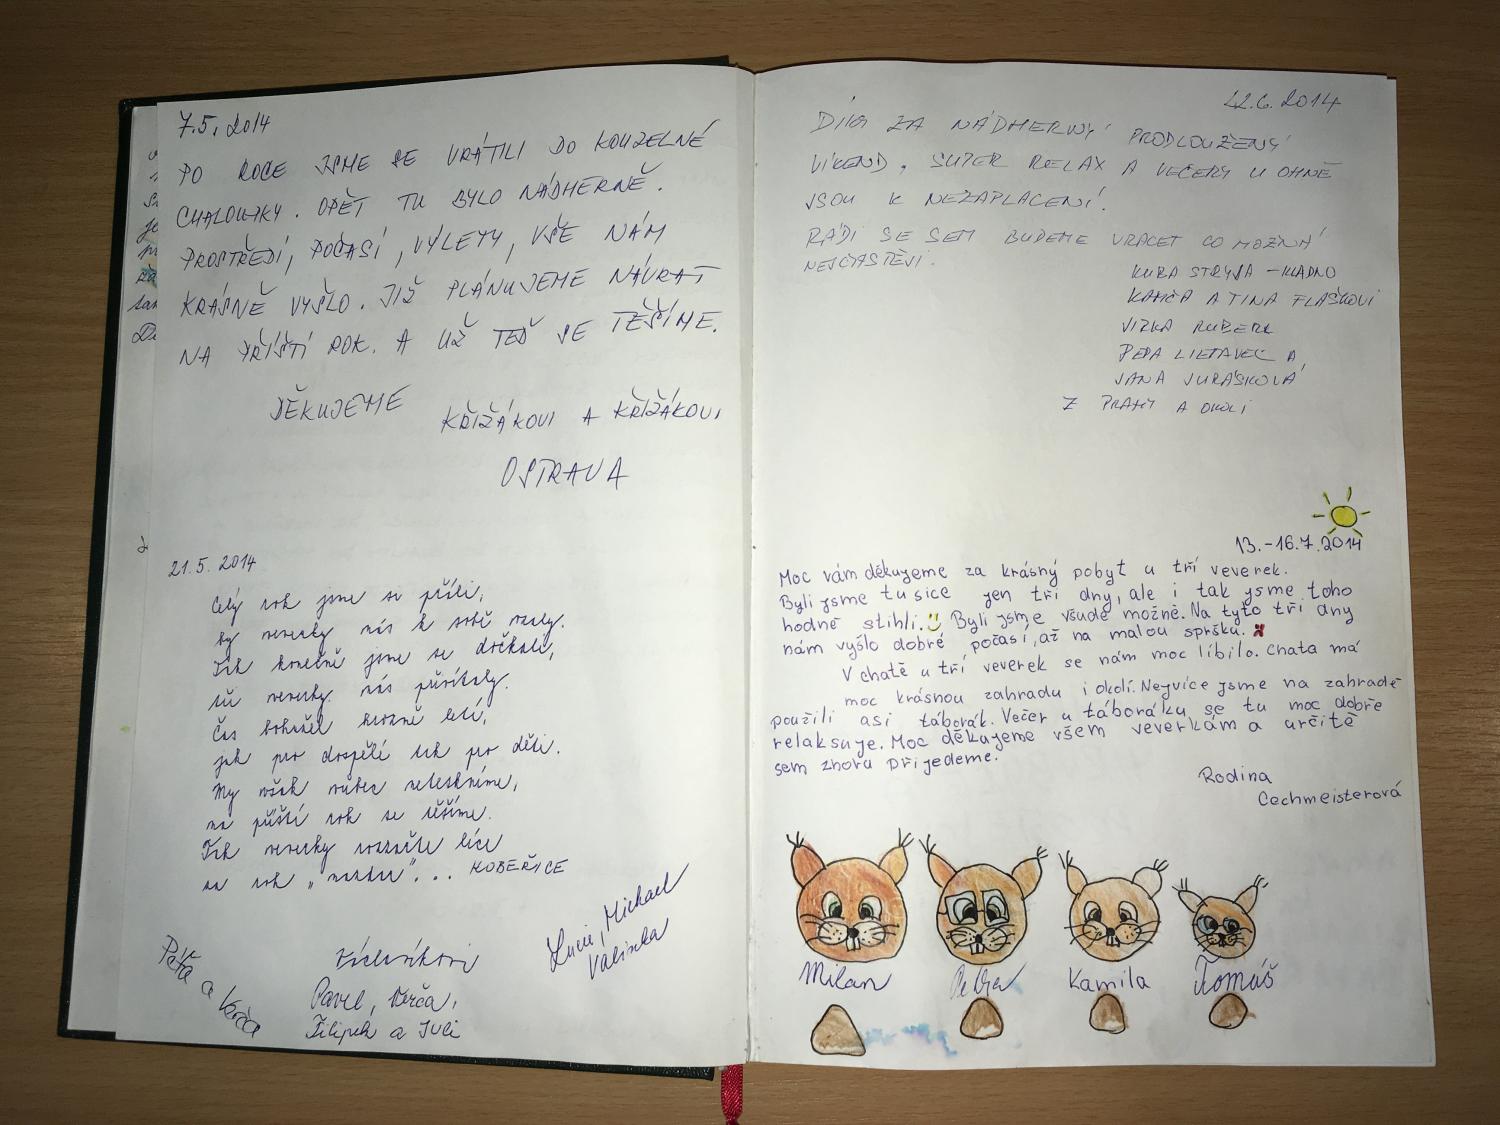 7.5. 2014
PO ROCE JSME SE VRÁTILI DO KOUZELNÉ
CHALOUPKY. OPĚT TU BYLO NÁDHERNĚ.
PROSTŘEDÍ, POČASÍ, VÝLETY, VŠE NÁM
KRÁSNĚ VYŠLO. JIŽ PLÁNUJEME NÁVRAT
NA PŘÍŠTÍ ROK. A UŽ TEĎ SE TĚŠÍME.
DĚKUJEME KŘIŽÁKOVI A KŘIŽÁKOVI
OSTRAVA
21.5. 2014
Celý rok jsme si přáli,
by veverky nás k sobě zvaly.
Tak konečně jsme se dočkali,
tři veverky nás přivítaly.
Čas bohužel hrozně letí,
jak pro dospělé tak pro děti.
My však vůbec neteskníme,
na příští rok se těšíme.
Tak veverky
za rok „ ". . . KOBEŘICE
Péťa a
Pavel, Verča,
Filípek a Juli
Lucie, Michael
12.6.2014
DÍKY ZA NÁDHERNÝ PRODLOUŽENÝ
VÍKEND. SUPER RELAX A VEČERY U OHNĚ
JSOU K NEZAPLACENÍ.
RÁDI SE SEM BUDEME VRACET CO MOŽNÁ
NEJČASTĚJI.
KUBA STRYJA - KLADNO
KAMČA A TINA FLAŠKOVI
PEPA LIETAVEC A
JANA JURÁŠKOVÁ
Z PRAHY A OKOLÍ
13.-16.7.2014
Moc vám děkujeme za krásný pobyt u tří veverek.
Byli jsme tu sice jen tři dny, ale i tak jsme toho
hodně stihli. Byli jsme všude možně. Na tyto tři dny
nám vyšlo dobré počasí, až na malou spršku.
V chatě u tří veverek se nám moc líbilo. Chata má
moc krásnou zahradu i okolí. Nejvíce jsme na zahradě
použili asi táborák. Večer u táboráku se tu moc dobře
relaksuje. Moc děkujeme všem veverkám a určitě
sem znovu přijedeme.
Rodina
Cechmeisterová
Milan Petra Kamila Tomáš